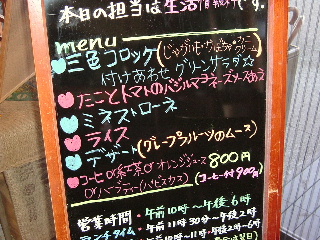 本日の担当は生活情報科です。
menu
三色コロッケ(じゃがいも・かぼちゃ・カニクリーム)
付けあわせ グリーンサラダ☆
たことトマトのバジルマヨネーズソースあえ
ミネストローネ
ライス
デザート(グレープフルーツのムース)
コーヒーor紅茶orオレンジジュース 800円
orハーブティー(ハイビスカス) (コーヒー付900円)
営業時間・午前10時〜午後6時
ランチタイム・午前11時30分〜午後2時